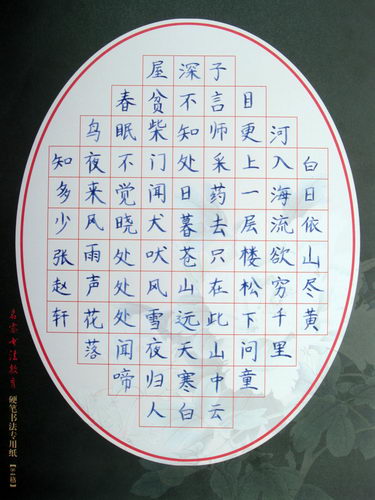 白日依山尽黄
河入海流欲穷千里
目更上一层楼松下问童
子言师采药去只在此山中云
深不知处日暮苍山远天寒白
屋贫柴门闻犬吠风雪夜归人
春眠不觉晓处处处闻啼
鸟夜来风雨声花落
知多少张赵轩
名家书法教育
硬笔书法专用纸【84格】